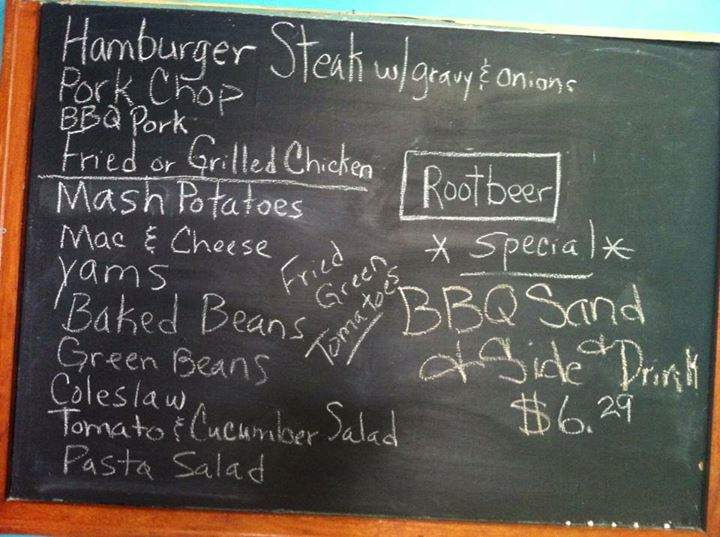 Hamburger Steak w/gravy & onions
Pork Chop
BBQ Pork
Fried or Grilled Chicken
Mash Potatoes
Mac & Cheese
Yams
Baked Beans
Green Beans
Coleslaw
Tomato & Cucumber Salad
Pasta Salad
Fried
Green
Tomatoes
Rootbeer
* Special *
BBQ Sand
& Side & Drink
$6.29